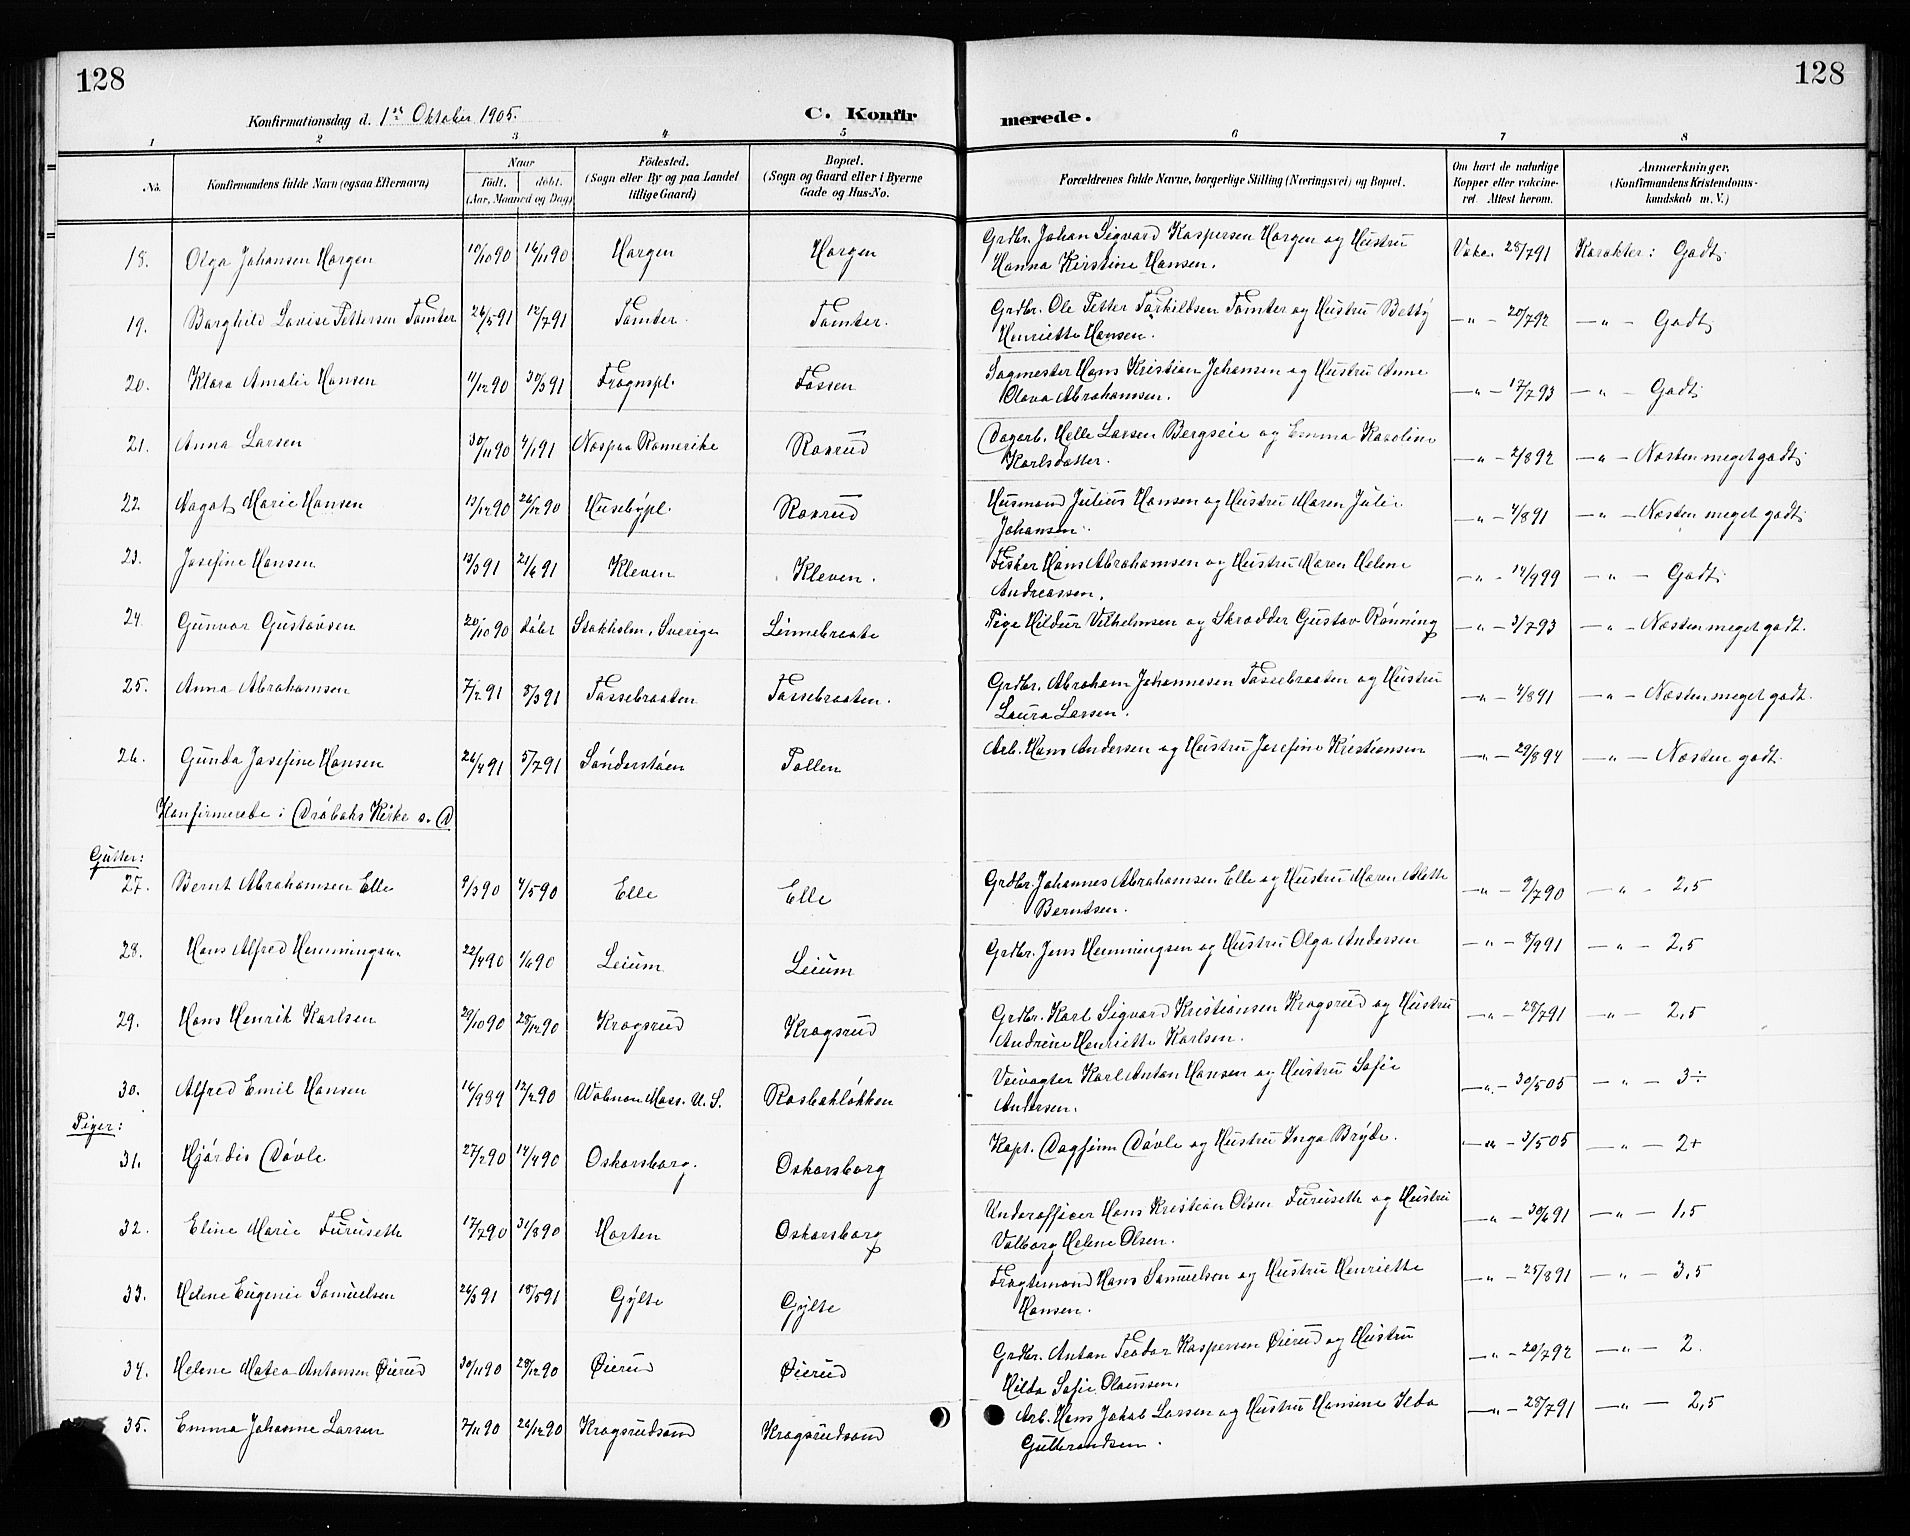 128
128
Konfirmationsdag d. 1ste Oktober 1905.
C. Konfirmerede.
1 2 3 4 5 6 7 8
No. Konfirmandens fulde Navn (ogsaa Efternavn) Naar født. døbt. (Aar, Maaned og Dag) Fødested. (Sogn eller By og paa Landet tillige Gaard) Bopæl. (Sogn og Gaard eller i Byerne Gade og Hus-No. Forældrenes fulde Navne, borgerlige Stilling (Næringsvei) og Bopæl. Om havt de naturlige Kopper eller vakcineret. Attest herom. Anmerkninger, (Konfirmandens Kristendomskundskab m. V.)
18. Olga Johansen Horgen 10/10 90 16/11 90 Horgen Horgen Grdbr. Johan Sigvard Kaspersen Horgen og Hustru Hanna Kirstine Hansen. Vake. 28/7 91 Karakter: Godt
19. Borghild Lovise Pettersen Tomter 26/5 91 12/7 91 Tomter. Tomter. Grdbr. Ole Petter Torkildsen Tomter og Hustru Betty Henriette Hansen. —"— 20/7 92 —"— Godt
20. Klara Amalie Hansen 11/12 90 30/3 91 Frognspl. Fossen Sagmester Hans Kristian Johansen og Hustru Anne Olava Abrahamsen. —"— 17/7 93 —"— Godt
21. Anna Larsen 30/11 90 4/1 91 Nas paa Romerike Roxrud Dagarb. Helle Larsen Bergseie og Emma Karoline Karlsdatter. —"— 2/8 92 —"— Næsten meget godt
22. Dagot Marie Hansen 13/12 90 26/12 90 Husebypl. Roxrud Husmand Julius Hansen og Hustru Maren Julie Johansen. —"— 4/8 91 —"— Næsten meget godt
23. Josefine Hansen 13/3 91 21/6 91 Kleven Kleven. Fisker Hans Abrahamsen og Hustru Maren Helene Andreassen. —"— 14/9 99 —"— Godt
24. Gunvor Gustavsen 20/10 90 døbt Stokholm, Sverige Linnebraate Pige Hildur Vilhelmsen og Skrædder Gustav Rønning —"— 3/7 93 —"— Næsten meget godt.
25. Anna Abrahamsen 7/2 91 8/3 91 Fossebraaten Fossebraaten. Grdbr. Abraham Johannesen Fossebraaten og Hustru Laura Larsen. —"— 4/8 91 —"— Næsten meget godt.
26. Gunda Josefine Hansen 26/4 91 5/7 91 Sønderstøen Tollen Arb. Hans Andersen og Hustru Josefine Kristiansen —"— 29/8 94 —"— Næsten godt.
Konfirmerede i Drøbaks Kirke s. D
Gutter:
27. Bernt Abrahamsen Elle 9/3 90 4/5 90 Elle Elle Grdbr. Johannes Abrahamsen Elle og Hustru Maren Alette Berntsen. —"— 9/7 90 —"— 2,5
28. Hans Alfred Hemmingsen 22/4 90 1/6 90 Leium Leium Grdbr. Jens Hemmingsen og Hustru Olga Andersen —"— 8/9 91 —"— 2,5
29. Hans Henrik Karlsen 29/10 90 28/12 90 Krogsrud Krogsrud Grdbr. Karl Sigvard Kristiansen Krogsrud og Hustru Andrine Henriette Karlsen. —"— 28/7 91 —"— 2,5
30. Alfred Emil Hansen 16/9 89 12/2 90 Wobnon Mass. U. S. Rosbakløkken Veivogter Karl Anton Hansen og Hustru Sofie Andersen. —"— 30/5 05 —"— 3÷
Piger:
31. Hjørdis Døvle 27/2 90 14/4 90 Oskarsborg. Oskarsborg Kapt. Dagfinn Døvle og Hustru Inga Bryde. —"— 3/5 05 —"— 2+
32. Eline Marie Furuseth 17/7 90 31/8 90 Horten Oskarsborg Underofficer Hans Kristian Olsen Furuseth og Hustru Valborg Helene Olsen. —"— 30/6 91 —"— 1,5
33. Helene Eugenie Samuelsen 26/3 91 18/5 91 Gylte Gylte Fragtemand Hans Samuelsen og Hustru Henriette Hansen. —"— 25/8 91 —"— 3,5
34. Helene Matea Antonsen Øierud 30/11 90 28/12 90 Øierud Øierud Grdbr. Anton Teodor Kaspersen Øierud og Hustru Hilda Sofie Olaussen. —"— 20/7 92 —"— 2.
35. Emma Johanne Larsen 7/11 90 26/12 90 Krogsrudsand Krogsrudsand Arb. Hans Jakob Larsen og Hustru Hansine Ilda Gulbrandsen. —"— 28/7 91 —"— 2,5